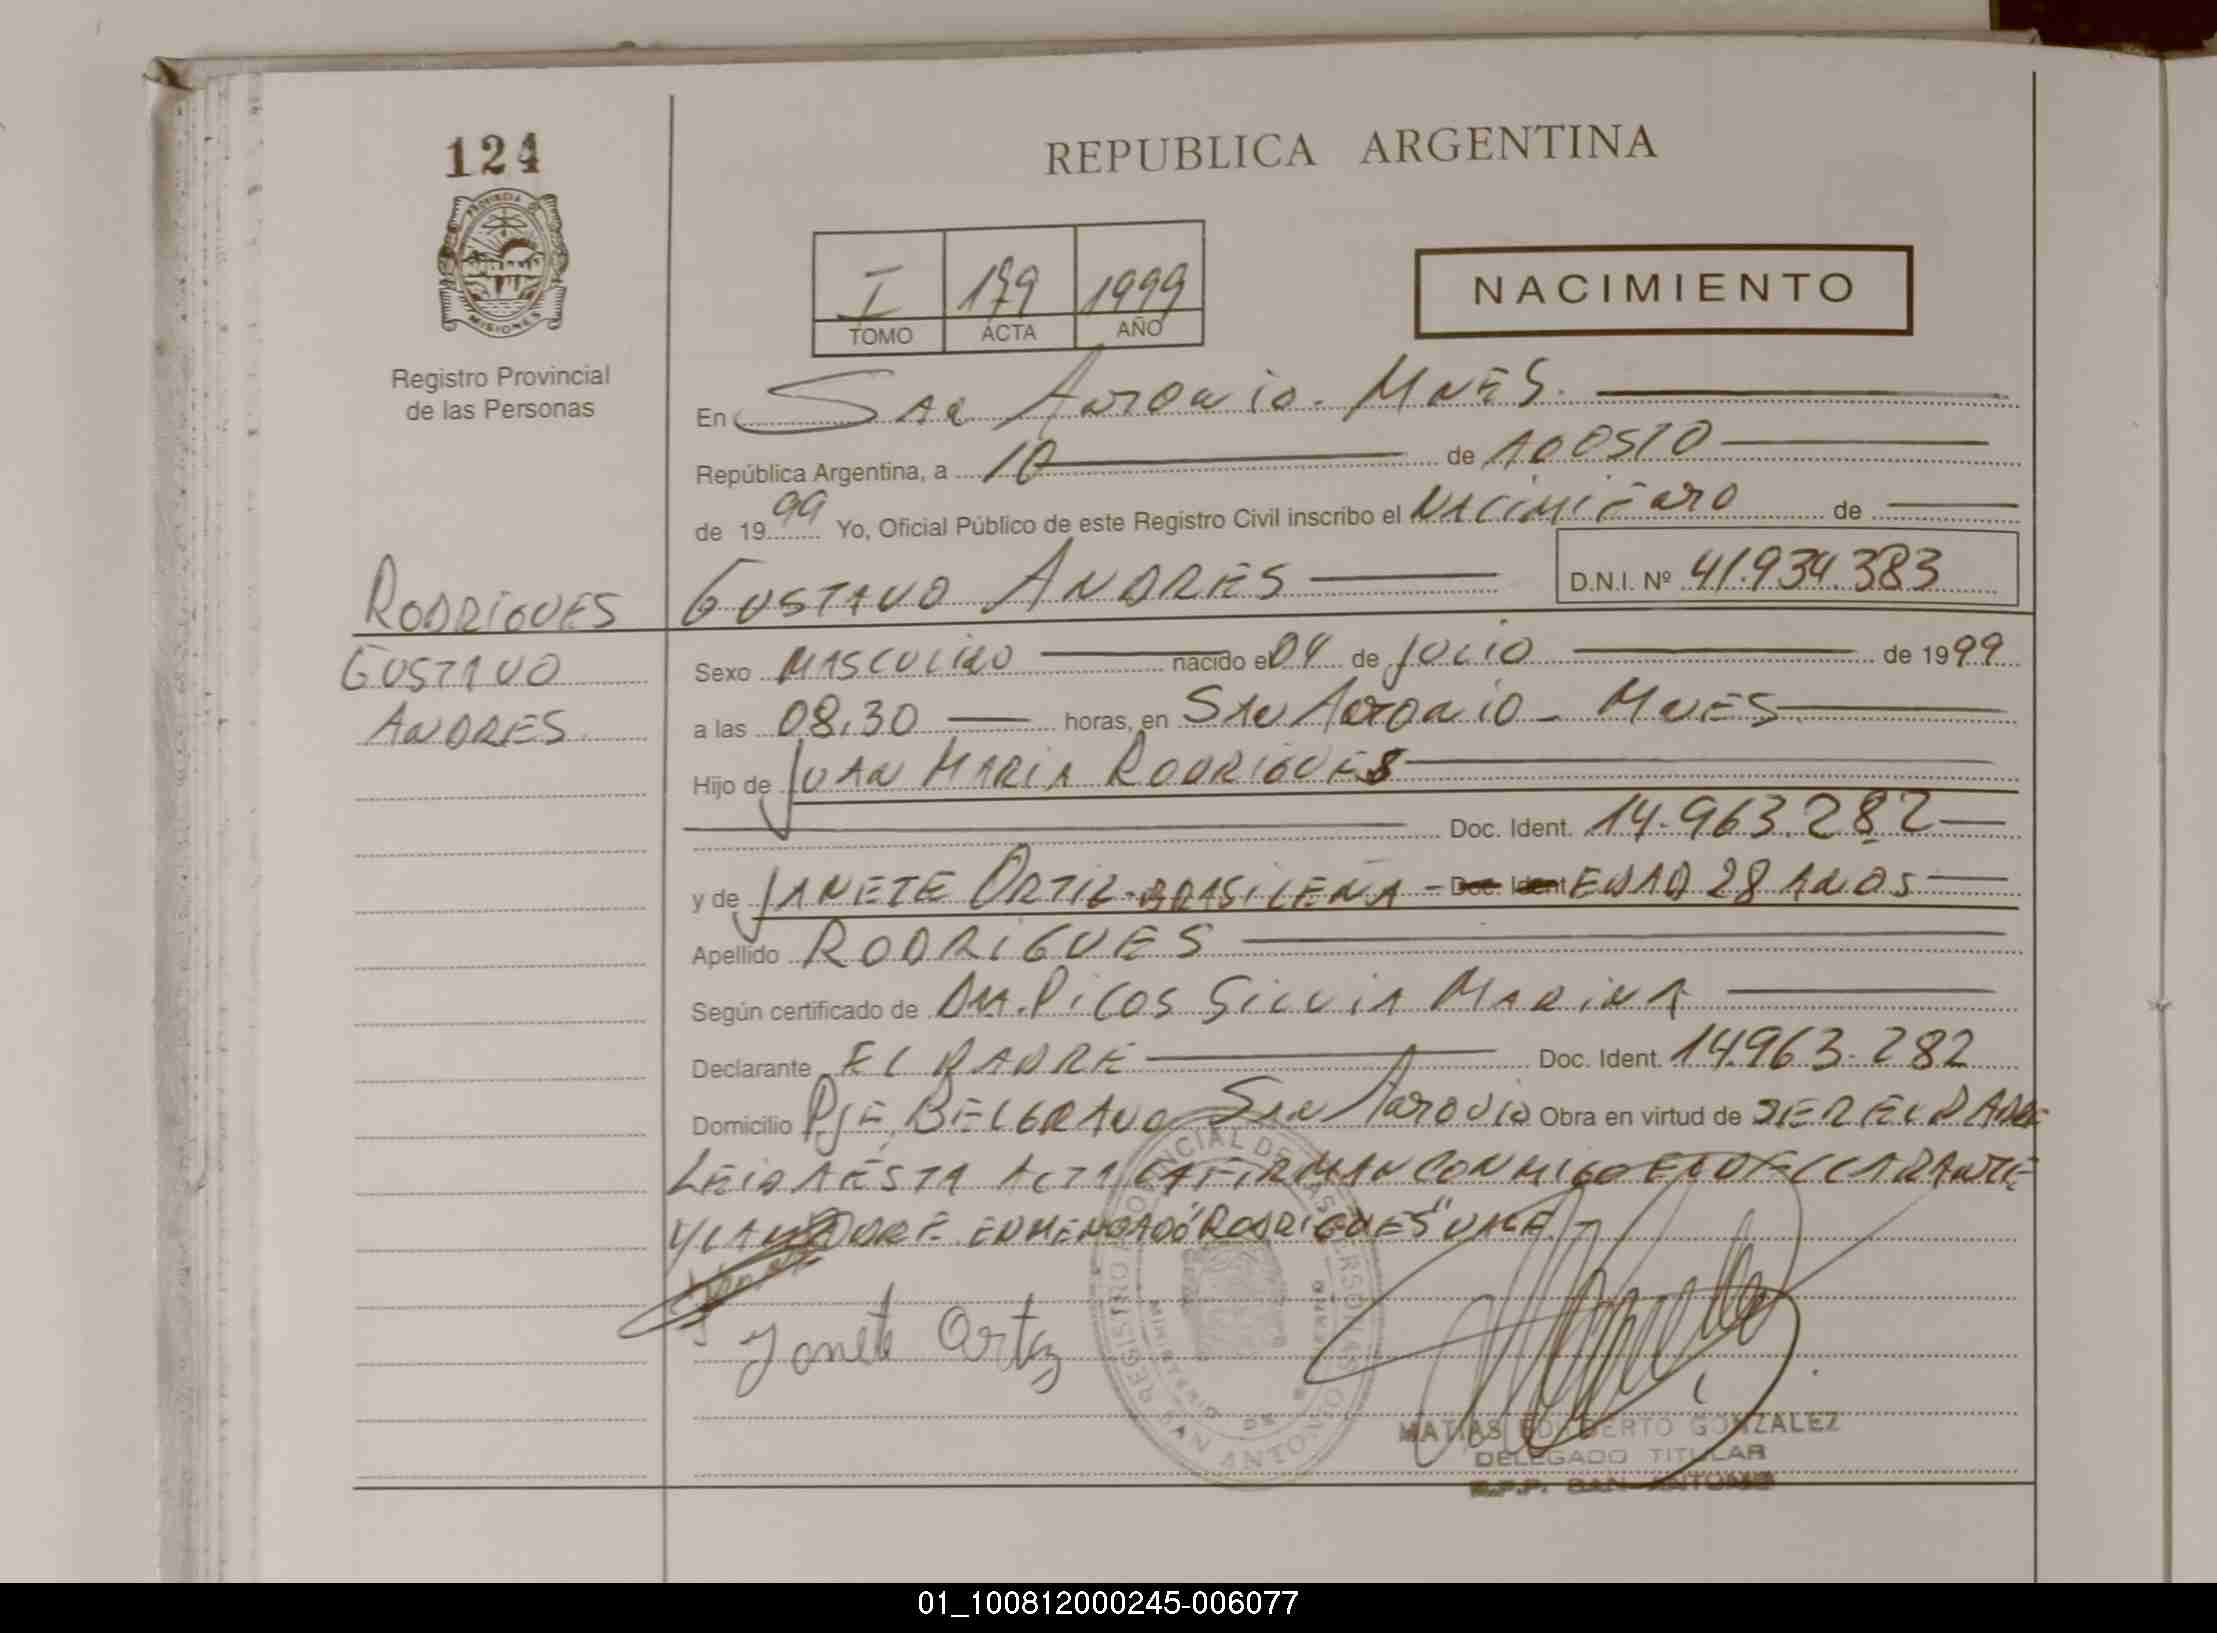 124
PROVINCIA DE
MISIONES
Registro Provincial
de las Personas
RODRIGUES
GUSTAVO
ANDRES
REPUBLICA ARGENTINA
I 179 1999
TOMO ACTA AÑO
NACIMIENTO
En San Antonio - MNES.
República Argentina, a 10 de AGOSTO
de 1999 Yo, Oficial Público de este Registro Civil inscribo el NACIMIENTO de
GUSTAVO ANDRES D.N.I. Nº 41.934.383
Sexo MASCULINO nacido el 04 de JULIO de 1999
a las 08,30 horas, en SAN ANTONIO - MNES
Hijo de JUAN MARIA RODRIGUES
Doc. Ident. 14.963.282
y de JANETE ORTIZ - BRASILEÑA - Doc. Ident EDAD 28 AÑOS
Apellido RODRIGUES
Según certificado de DRA. PICOS SILVIA MARINA
Declarante EL PADRE Doc. Ident. 14.963.282
Domicilio PJE. BELGRANO San Antonio Obra en virtud de SER EL PADRE
LEIDA ESTA ACTA LA FIRMAN CONMIGO EL DECLARANTE
Y LA MADRE ENMENDADO "RODRIGUES" VALE.
Janete Ortiz
REGISTRO PROVINCIAL DE LAS PERSONAS
MINISTERIO DE GOBIERNO
SAN ANTONIO
MATIAS GONZALEZ
DELEGADO TITULAR
R.P.P. SAN ANTONIO
01_100812000245-006077